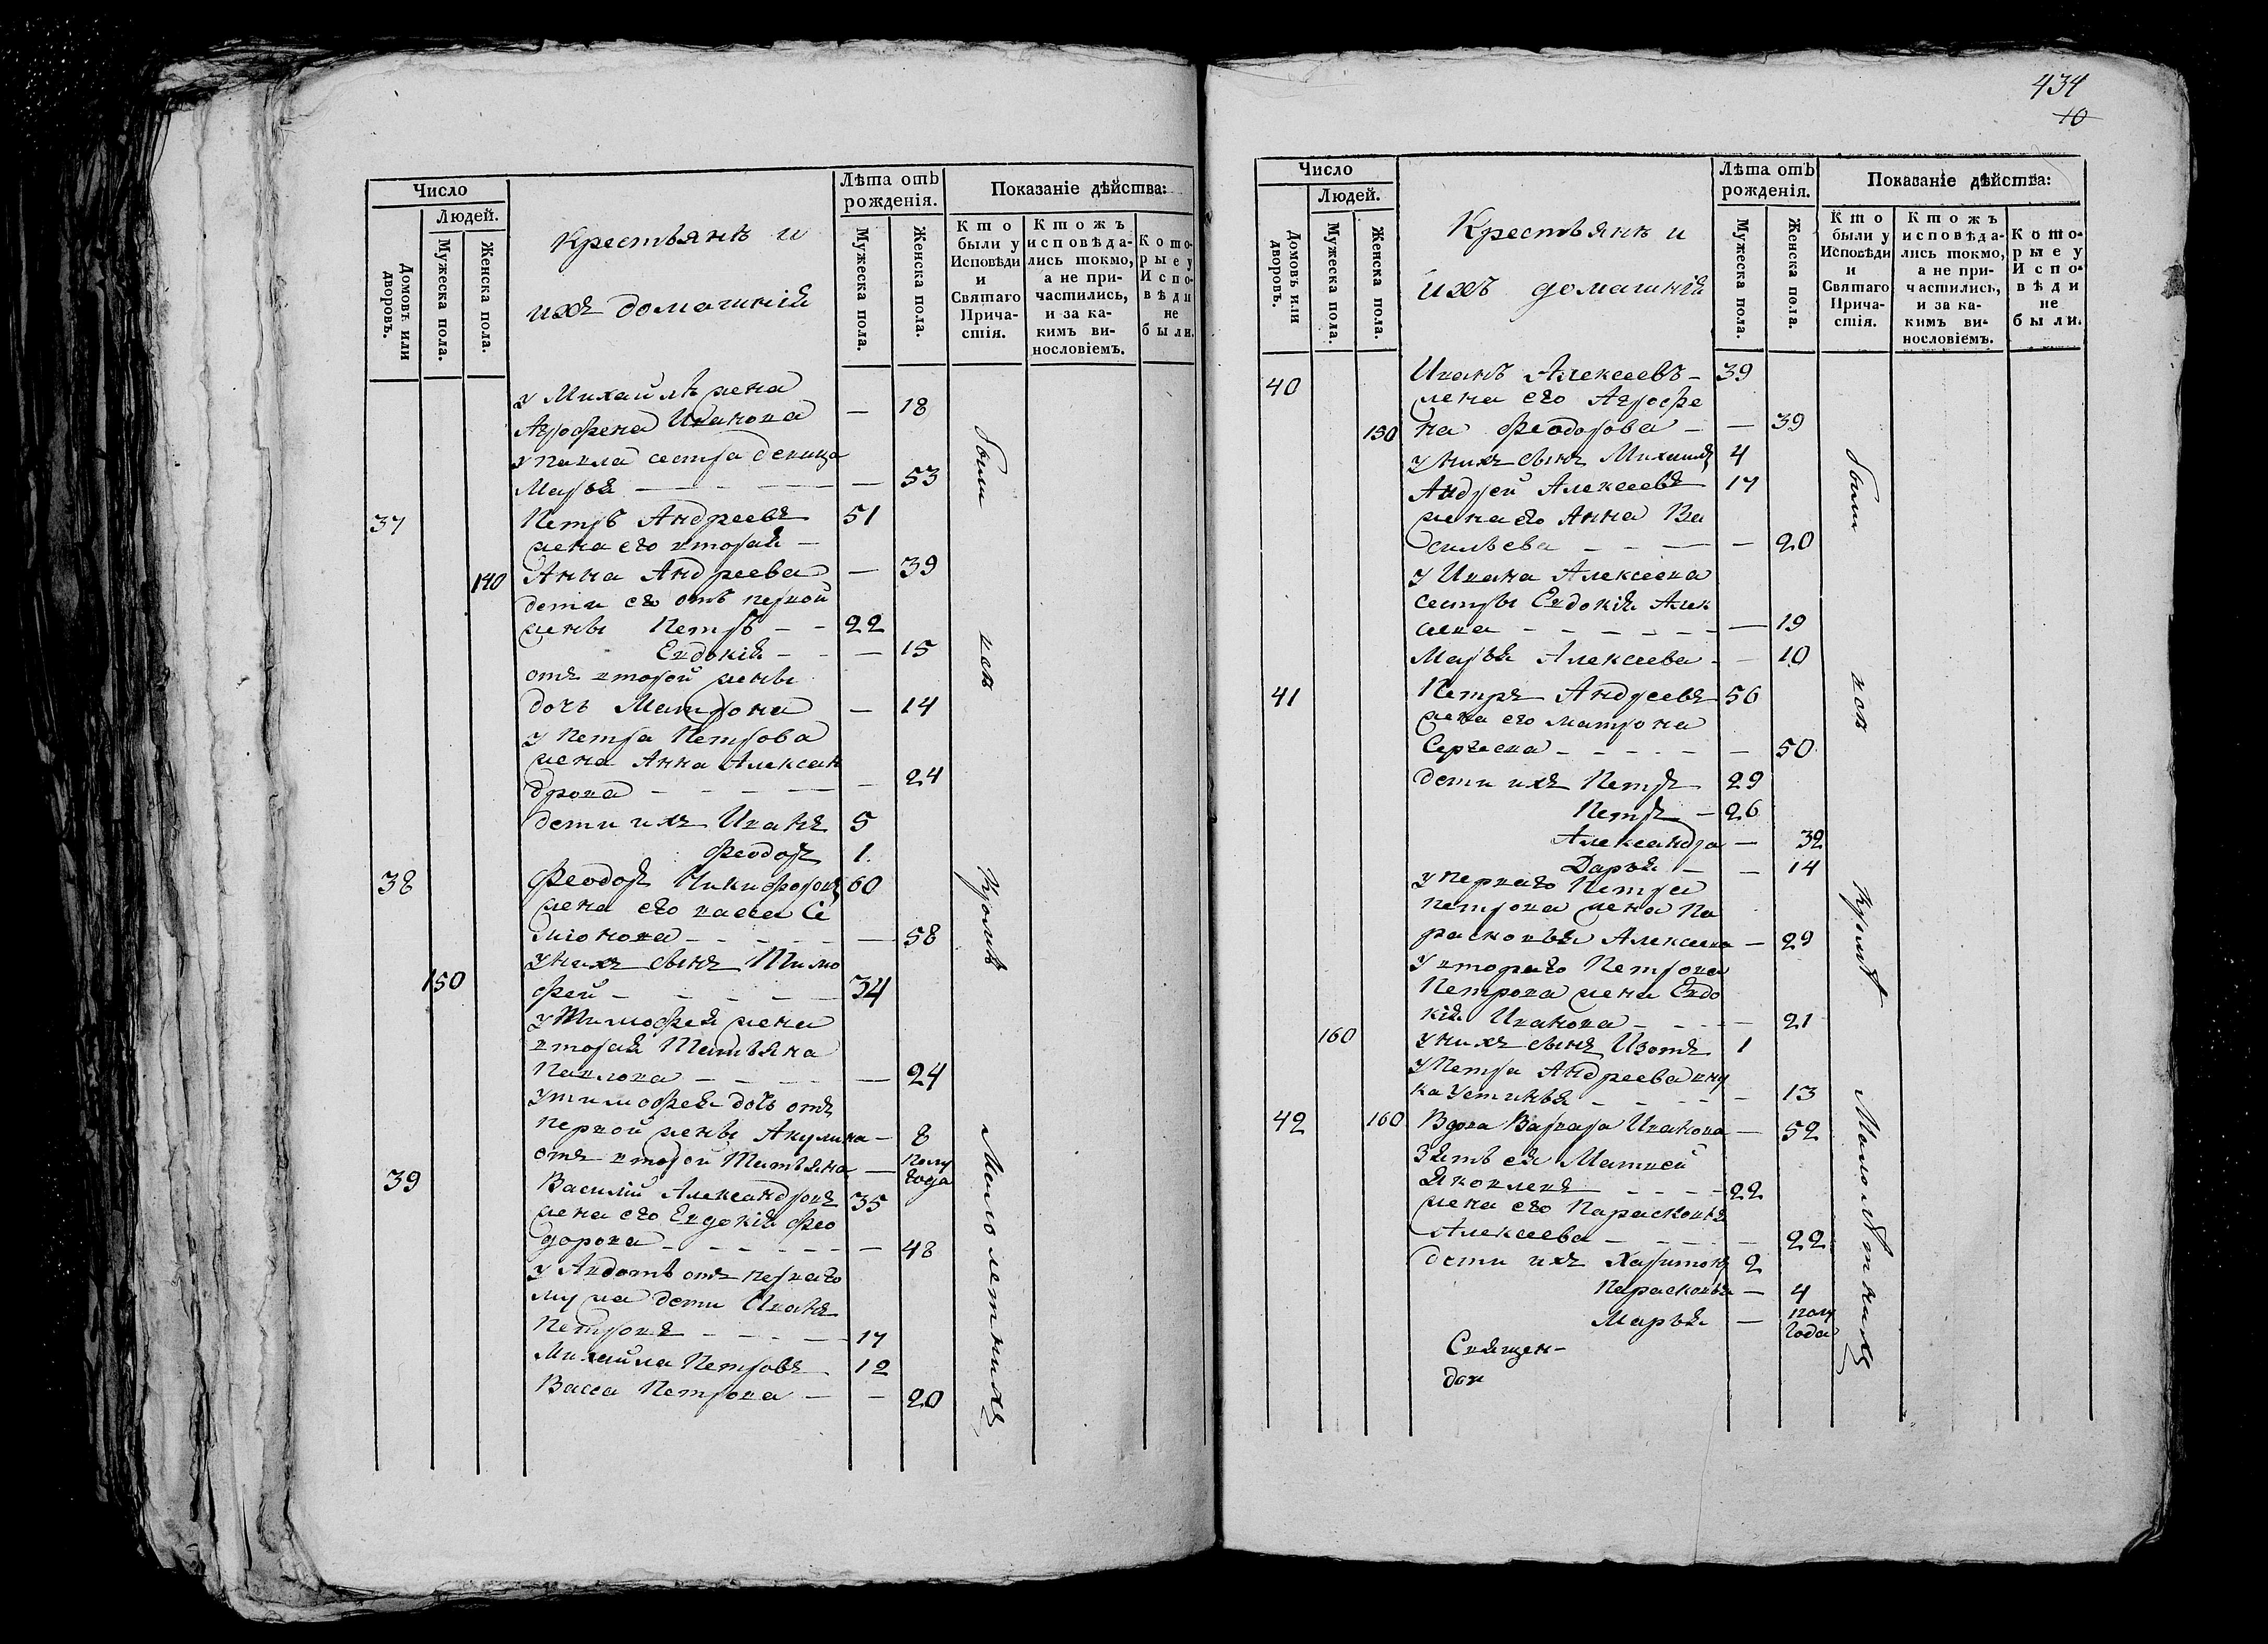 Число
Людей.
Домовъ или дворовъ.
Мужеска пола.
Женска пола.
Крестьянѣ и
ихъ домашнія
Лѣта отъ
рожденія.
Мужеска пола.
Женска пола.
Показаніе дѣйства:
Кто
были у
Исповѣди
и
Святаго
Прича-
стія.
Ктожъ
исповѣда-
лись токмо,
а не при-
частились,
и за ка-
кимъ ви-
нословіемъ.
Кото-
рые у
Испо-
вѣди
не
были.
у Михайлѣ жена
Агрофена Иванова — 18
у Павла сестра девица
Марья — — 53
37 Петръ Андреевъ 51
жена его вторая —
140 Анна Андреева — 39
дети его отъ первой
жены Петръ — 22
Евдокія — — 15
отъ второй жены
дочь Матрона — 14
у Петра Петрова
жена Анна Алексан
дрова — — 24
дети ихъ Иванъ 5
Феодоръ 1
38 Феодоръ Никифоровъ 60
жена его васса Се
мионова — — 58
у нихъ сынъ Тимо
150 фей — 34
у Тимофея жена
вторая Татьяна
Павлова — — 24
у тимофея дочь отъ
первой жены Акулина — 8
отъ второй Татьяна — полу
года
39 Василій Александровъ 35
жена его Евдокія Фео
дорова — — 48
у Авдотѣ отъ перваго
мужа дети Иванъ
Петровъ — 17
Михайла Петровъ 12
Васса Петрова — — 20
были
всѣ
кромѣ
Малолетнихъ
434
10
Число
Людей.
Домовъ или дворовъ.
Мужеска пола.
Женска пола.
Крестьянѣ и
ихъ домашнія
Лѣта отъ
рожденія.
Мужеска пола.
Женска пола.
Показаніе дѣйства:
Кто
были у
Исповѣди
и
Святаго
Прича-
стія.
Ктожъ
исповѣда-
лись токмо,
а не при-
частились,
и за ка-
кимъ ви-
нословіемъ.
Кото-
рые у
Испо-
вѣди
не
были.
40 Иванъ Алексеевъ — 39
жена его Агрофе
150 на Феодорова — — 39
у нихъ сынъ Михаилъ 4
Андрей Алексеевъ 17
жена его Анна Ва
сильева — — 20
у Ивана Алексеева
сестры Евдокія Алек
сеева — — 19
Марья Алексеева — — 10
41 Петръ Андреевъ 56
жена его матрона
Сергеева — — 50
дети ихъ Петръ 29
Петръ — 26
Александра — 32
Дарья — — 14
у перваго Петра
петрова жена Па
расковья Алексеева — 29
у втораго Петрова
Петрова жена Евдо
кія Иванова — — 21
160 у нихъ сынъ Изотъ 1
у Петра Андреева вну
ка Устинья — — 13
42 160 Вдова Варвара Иванова — 52
Зять ея Матвей
Яковлевъ — 22
жена его Парасковья
Алексеева — — 22
дети ихъ Харитонъ 2
Парасковья — 4
Марья — полу
года
Священ-
были
всѣ
кромѣ
Малолѣтнихъ